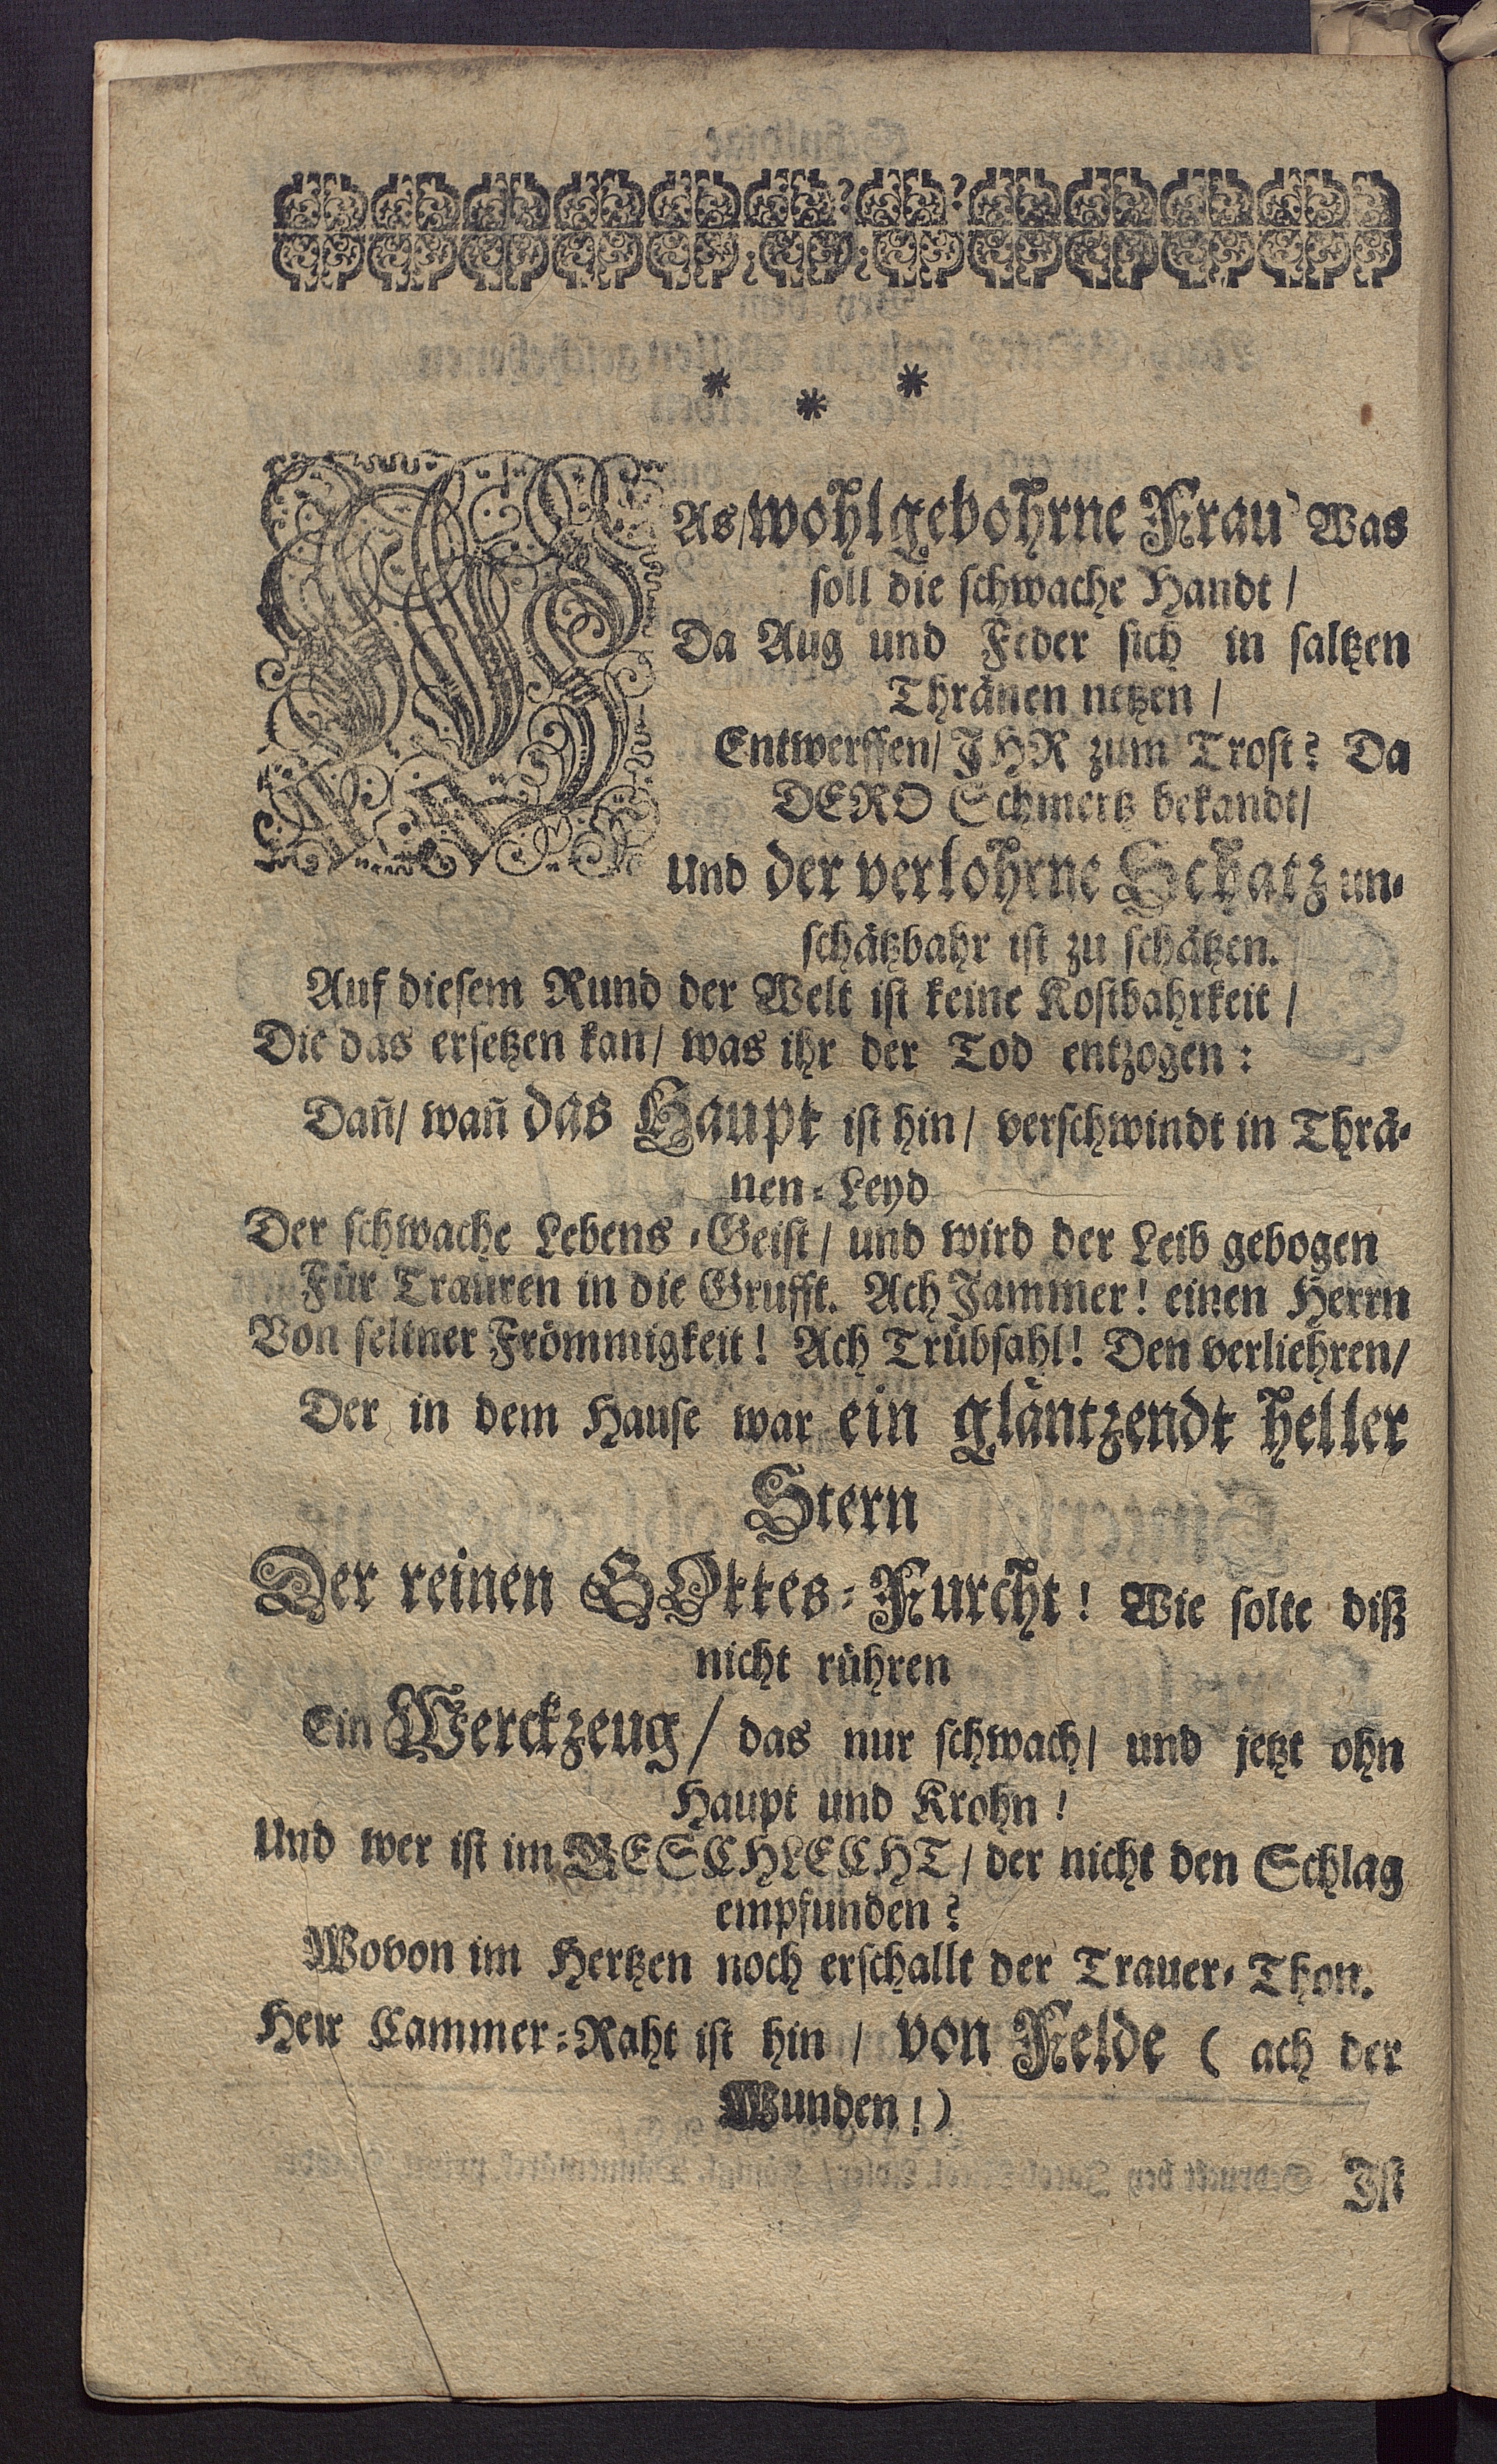 * * *
WAs/ wohlgebohrne Frau/ Was
soll die schwache Handt /
Da Aug und Feder sich in saltzen
Thränen netzen /
Entwerffen/ JHR zum Trost? Da
DERO Schmertz bekandt/
Und der verlohrne Schatz un-
schätzbahr ist zu schätzen.
Auf diesem Rund der Welt ist keine Kostbahrkeit /
Die das ersetzen kan/ was ihr der Tod entzogen:
Dañ/ wañ das Haupt ist hin/ verschwindt in Thrä-
nen-Leyd
Der schwache Lebens-Geist/ und wird der Leib gebogen
Für Trauren in die Grufft. Ach Jammer! einen Herrn
Von seltner Frömmigkeit! Ach Trübsahl! Den verliehren/
Der in dem Hause war ein gläntzendt heller
Stern
Der reinen GOttes-Furcht! Wie solte diß
nicht rühren
Ein Werckzeug/ das nur schwach/ und jetzt ohn
Haupt und Krohn!
Und wer ist im GESCHLECHT/ der nicht den Schlag
empfunden?
Wovon im Hertzen noch erschallt der Trauer-Thon.
Herr Cammer-Raht ist hin / von Felde ( ach der
Wunden!)
Ist